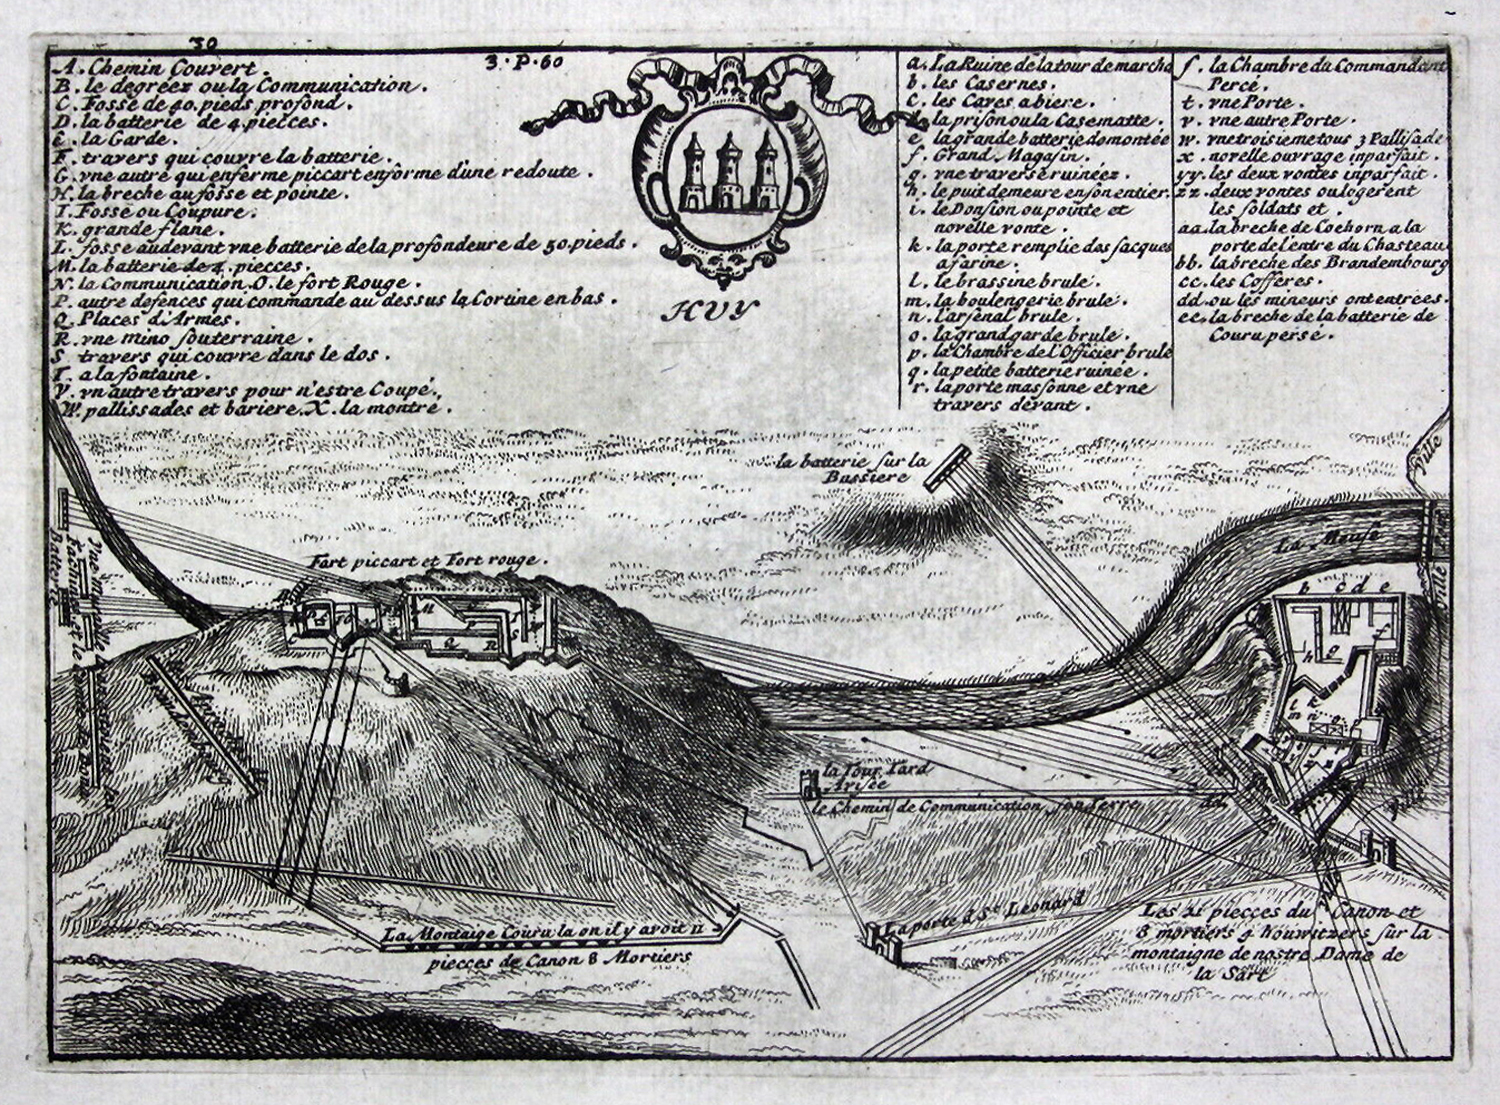 30
3. P. 60
A. Chemin Couvert.
B. le degréez ou la Communication.
C. Fosse de 40. pieds profond.
D. la batterie de 4. piecces.
E. la Garde.
F. travers qui couvre la batterie.
G. vne autre qui enferme piccart en forme d'une redoute.
H. la breche au fosse et pointe.
I. Fosse ou Coupure.
K. grande flane.
L. fosse audevant vne batterie de la profondeure de 50. pieds.
M. la batterie de 4. piecces.
N. la Communication. O. le fort Rouge.
P. autre defences qui commande au dessus la Cortine en bas.
Q. Places d'Armes.
R. vne mino souterraine.
S travers qui couvre dans le dos.
T. a la fontaine.
V. vn autre travers pour n'estre Coupé.
W. pallissades et bariere. X. la montré.
HVY
a. La Ruine de la tour de marcha
b. les Casernes.
c. les Caves a biere.
la prison ou la Casematte.
e. la grande batterie demontée
f. Grand Magasin.
g. vne traverse ruinéez.
h. le puit demeure en son entier.
i. le Donsion ou pointe et
novelle vonte.
k. la porte remplie das sacques
a farine.
l. le brassine brulé.
m. la boulengerie brulé.
n. l'arsenal brule.
o. la grand garde brule.
p. la Chambre de l'Officier brulé
q. la petite batterie ruinée.
r. la porte massonne et vne
travers devant.
s. la Chambre du Commandant
Percé.
t. vne Porte.
v. vne autre Porte.
w. vne troisieme tous 3 Pallisade
x. novelle ouvrage inparfait.
yy. les deux vontes inparfait.
zz. deux vontes ou logerent
les soldats et.
aa. la breche de Coehorn a la
porte de l'entre du Chasteau
bb. la breche des Brandembourg
cc. les Cofferes.
dd. ou les mineurs ont entrées.
ee. la breche de la batterie de
Couru persé.
la batterie sur la
Bussiere
Ville
La Meuse
Ville
Fort piccart et Fort rouge.
Batterie
M
Q
R
S
b c d e
f
h g
l k
m n o
la Tour Tard
Arisée
le Chemin de Communication sou terre
dd
Ville
La porte d St. Leonard
La Montaige Couru la on il y avoit 11
piecces de Canon 8 Mortiers
Les 21 piecces du Canon et
8 mortiers 4 houwitzers sur la
montaigne de nostre Dame de
la Sart